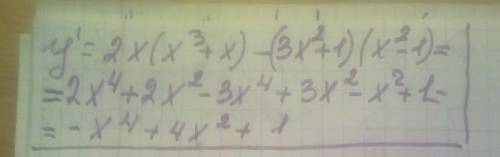 y' = 2x(x³+x) - (3x²+1)(x²-1) =
= 2x⁴ + 2x² - 3x⁴ + 3x² - x² + 1 =
= - x⁴ + 4x² + 1